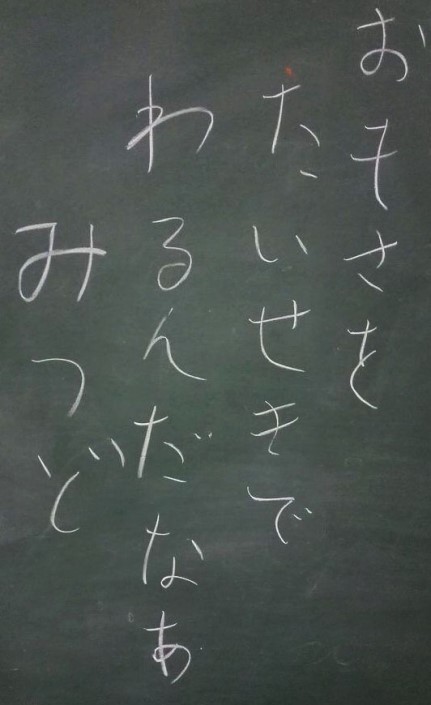 おもさを
たいせきで
わるんだなあ
みつど